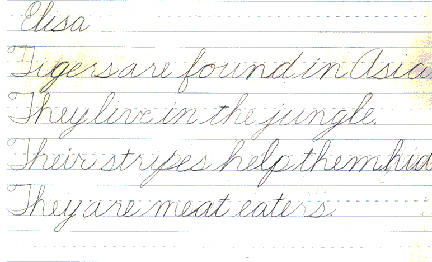 Elisa
Tigers are found in Asia
They live in the jungle.
Their stripes help them hid
They are meat eaters.